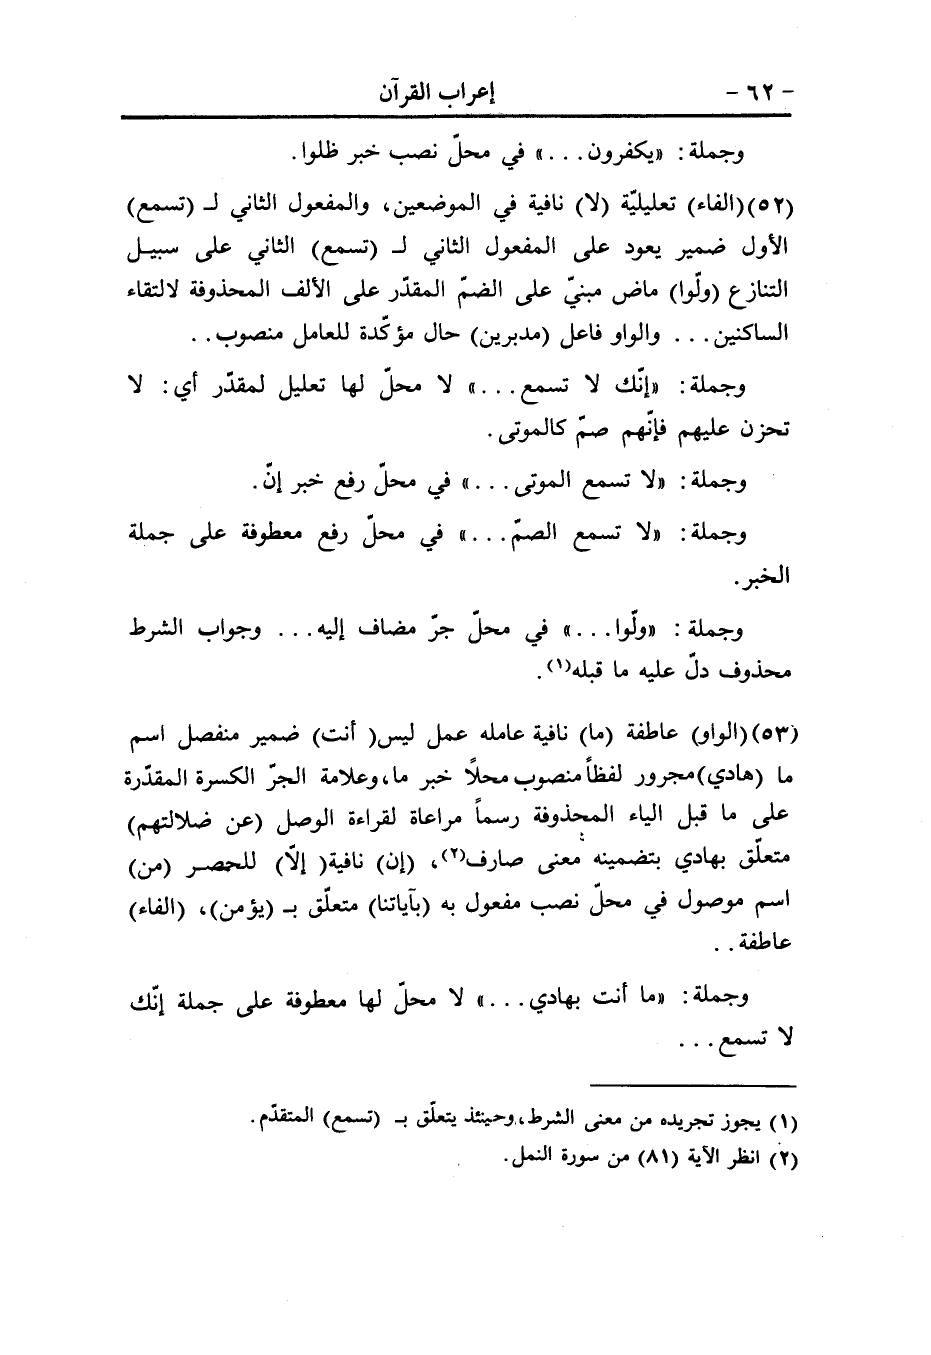 - ٦٢ - إعراب القرآن
وجملة: «يكفرون...» في محلّ نصب خبر ظلوا.
(٥٢)(الفاء) تعليليّة (لا) نافية في الموضعين، والمفعول الثاني لـ (تسمع)
الأول ضمير يعود على المفعول الثاني لـ (تسمع) الثاني على سبيل
التنازع (ولّوا) ماض مبنيّ على الضمّ المقدّر على الألف المحذوفة لالتقاء
الساكنين... والواو فاعل (مدبرين) حال مؤكّدة للعامل منصوب..
وجملة: «إنّك لا تسمع...» لا محلّ لها تعليل لمقدّر أي: لا
تحزن عليهم فإنّهم صمّ كالموتى.
وجملة: «لا تسمع الموتى...» في محلّ رفع خبر إنّ.
وجملة: «لا تسمع الصمّ...» في محلّ رفع معطوفة على جملة
الخبر.
وجملة: «ولّوا...» في محلّ جرّ مضاف إليه... وجواب الشرط
محذوف دلّ عليه ما قبله(١).
(٥٣)(الواو) عاطفة (ما) نافية عامله عمل ليس( أنت) ضمير منفصل اسم
ما (هادي)مجرور لفظاً منصوب محلاً خبر ما،وعلامة الجرّ الكسرة المقدّرة
على ما قبل الياء المحذوفة رسماً مراعاة لقراءة الوصل (عن ضلالتهم)
متعلّق بهادي بتضمينه معنى صارف(٢)، (إن) نافية( إلّا) للحصر (من)
اسم موصول في محلّ نصب مفعول به (بآياتنا) متعلّق بـ (يؤمن)، (الفاء)
عاطفة..
وجملة: «ما أنت بهادي...» لا محلّ لها معطوفة على جملة إنّك
لا تسمع...
(١) يجوز تجريده من معنى الشرط،وحينئذ يتعلّق بـ (تسمع) المتقدّم.
(٢) انظر الآية (٨١) من سورة النمل.